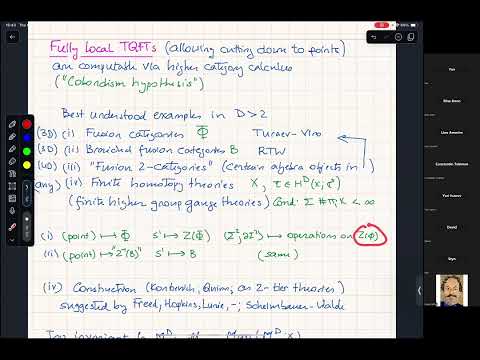 Fully Local TQFTs (allowing cutting down to points)
are computable via higher category calculus
("Cobordism hypothesis")
Best understood examples in D>2
(3D) (i) Fusion categories Φ Turaev-Viro
(3D) (ii) Braided fusion categories B RTW
(4D) (iii) "Fusion 2-categories" (certain algebra objects in )
any) (iv) Finite homotopy theories X, τ∈H^D(X;ℂ^×)
(finite higher group gauge theories) Cond: Σ #π_iX < ∞
(i) (point) ↦ Φ S¹ ↦ Z(Φ) (Σ²,∂Σ²) ↦ operations on Z(Φ)
(ii) (point) ↦ "Z(B)" S¹ ↦ B (same)
(iv) Construction (Kontsevich, Quinn, as 2-tier theories)
suggested by Freed, Hopkins, Lurie, -; Scheimbauer-Walde